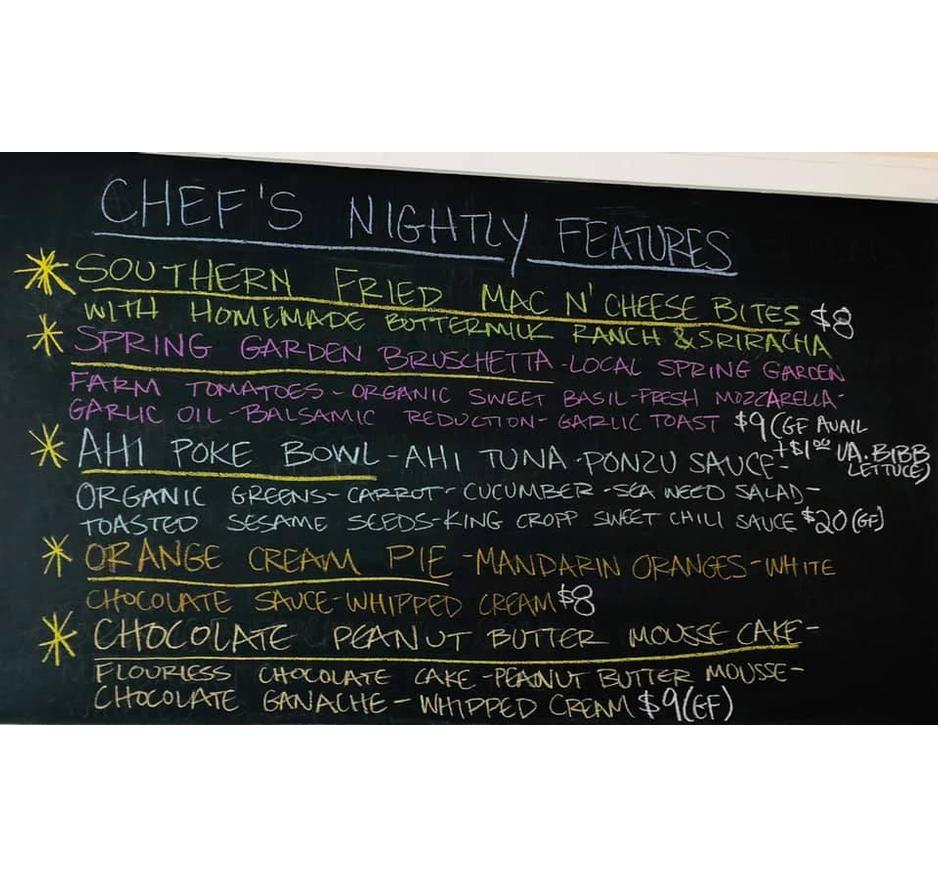 CHEF'S NIGHTLY FEATURES
SOUTHERN FRIED MAC N' CHEESE BITES $8
WITH HOMEMADE BUTTERMILK RANCH & SRIRACHA
SPRING GARDEN BRUSCHETTA - LOCAL SPRING GARDEN
FARM TOMATOES - ORGANIC SWEET BASIL - FRESH MOZZARELLA -
GARLIC OIL - BALSAMIC REDUCTION - GARLIC TOAST $9 (GF AVAIL
+$1.00 VA. BIBB
LETTUCE)
AHI POKE BOWL - AHI TUNA - PONZU SAUCE -
ORGANIC GREENS - CARROT - CUCUMBER - SEA WEED SALAD -
TOASTED SESAME SEEDS - KING CROPP SWEET CHILI SAUCE $20 (GF)
ORANGE CREAM PIE - MANDARIN ORANGES - WHITE
CHOCOLATE SAUCE - WHIPPED CREAM $8
CHOCOLATE PEANUT BUTTER MOUSSE CAKE -
FLOURLESS CHOCOLATE CAKE - PEANUT BUTTER MOUSSE -
CHOCOLATE GANACHE - WHIPPED CREAM $9 (GF)